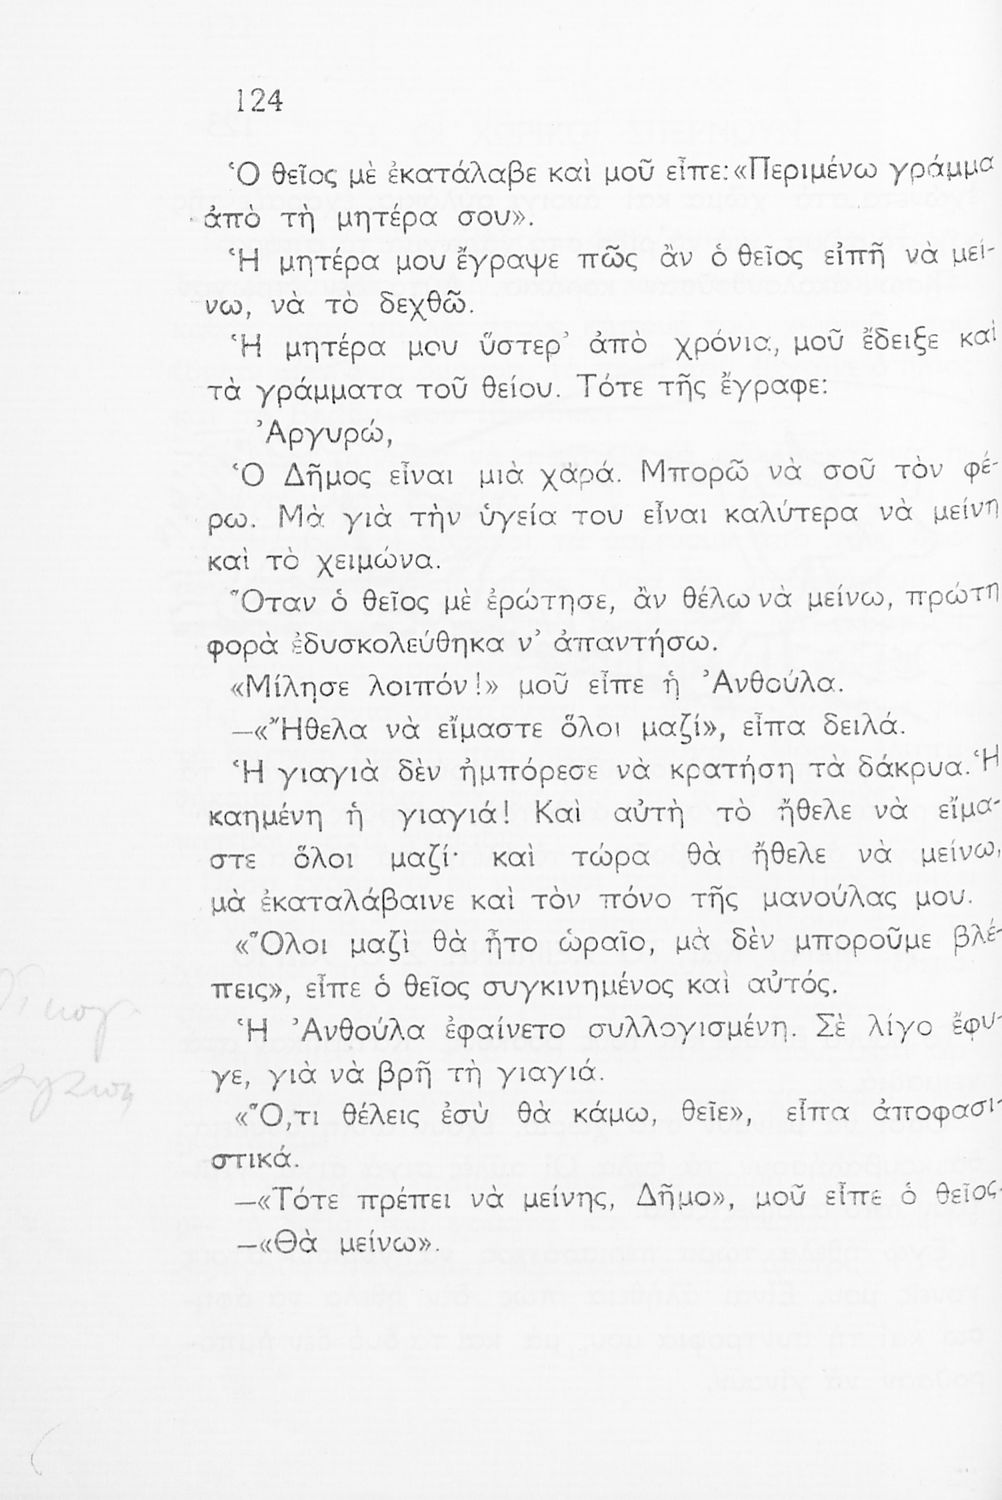 124
Ὁ θεῖος μὲ ἐκατάλαβε καὶ μοῦ εἶπε: «Περιμένω γράμμα
ἀπὸ τὴ μητέρα σου».
Ἡ μητέρα μου ἔγραψε πῶς ἂν ὁ θεῖος εἰπῆ νὰ μεί-
νω, νὰ τὸ δεχθῶ.
Ἡ μητέρα μου ὕστερ’ ἀπὸ χρόνια, μοῦ ἔδειξε καὶ
τὰ γράμματα τοῦ θείου. Τότε τῆς ἔγραφε:
Ἀργυρώ,
Ὁ Δῆμος εἶναι μιὰ χαρά. Μπορῶ νὰ σοῦ τὸν φέ-
ρω. Μὰ γιὰ τὴν ὑγεία του εἶναι καλύτερα νὰ μείνη
καὶ τὸ χειμώνα.
Ὅταν ὁ θεῖος μὲ ἐρώτησε, ἂν θέλω νὰ μείνω, πρώτη
φορὰ ἐδυσκολεύθηκα ν’ ἀπαντήσω.
«Μίλησε λοιπόν!» μοῦ εἶπε ἡ Ἀνθούλα.
—«Ἤθελα νὰ εἴμαστε ὅλοι μαζί», εἶπα δειλά.
Ἡ γιαγιὰ δὲν ἠμπόρεσε νὰ κρατήση τὰ δάκρυα. Ἡ
καημένη ἡ γιαγιά! Καὶ αὐτὴ τὸ ἤθελε νὰ εἴμα-
στε ὅλοι μαζί· καὶ τώρα θὰ ἤθελε νὰ μείνω,
μὰ ἐκαταλάβαινε καὶ τὸν πόνο τῆς μανούλας μου.
«Ὅλοι μαζὶ θὰ ἦτο ὡραῖο, μὰ δὲν μποροῦμε βλέ-
πεις», εἶπε ὁ θεῖος συγκινημένος καὶ αὐτός.
Ἡ Ἀνθούλα ἐφαίνετο συλλογισμένη. Σὲ λίγο ἔφυ-
γε, γιὰ νὰ βρῆ τὴ γιαγιά.
«Ὅ,τι θέλεις ἐσὺ θὰ κάμω, θεῖε», εἶπα ἀποφασι-
στικά.
—«Τότε πρέπει νὰ μείνης, Δῆμο», μοῦ εἶπε ὁ θεῖος.
—«Θὰ μείνω».